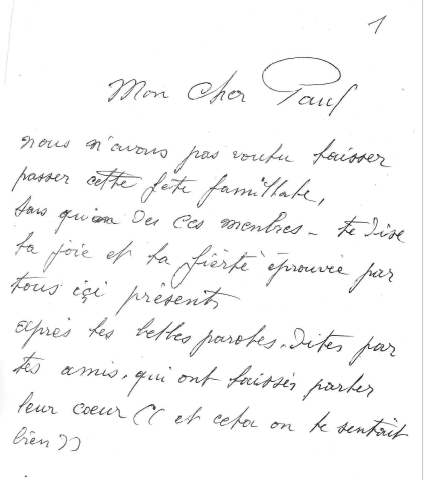 1
Mon cher Paul
nous n'avons pas voulu laisser
passer cette fete familliale,
sans qu'un Des Ces membres - te Dise
la joie et la fierté éprouvée par
tous içi présents
après les belles paroles. Dites par
tes amis. qui ont laissés parler
leur coeur (( et cela on le sentait
bien ))